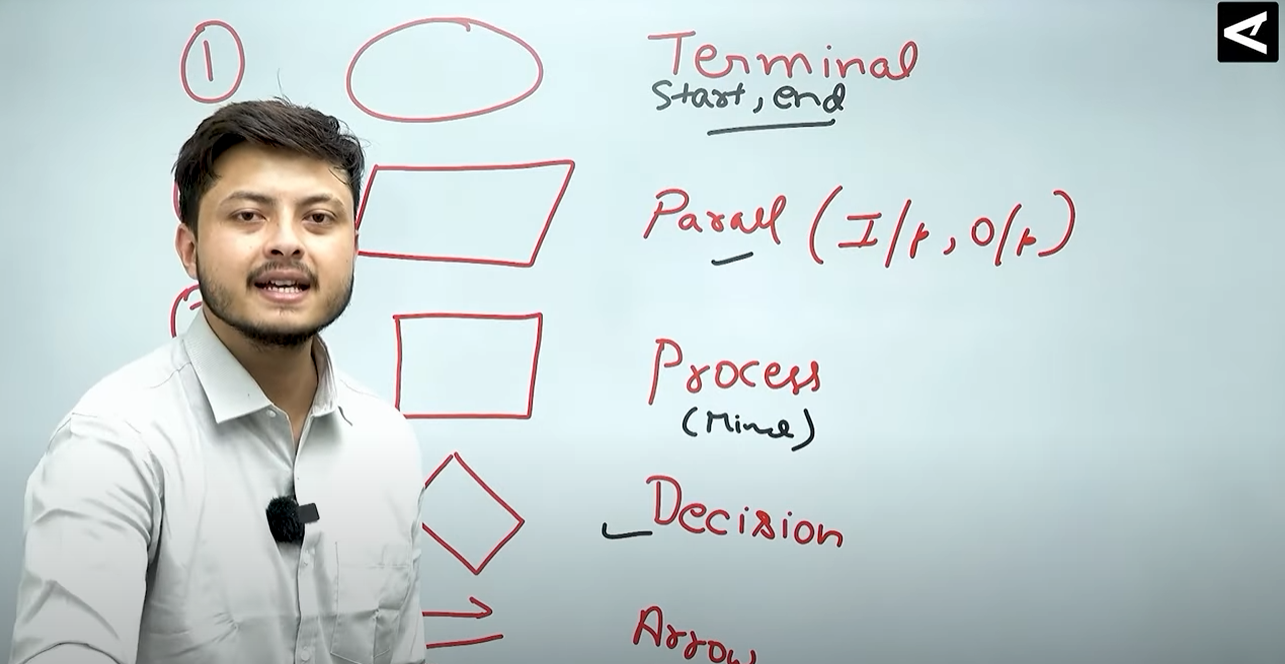 1 Terminal
Start, end
Parall (I/p, O/p)
Process
(Mind)
Decision
Arrow